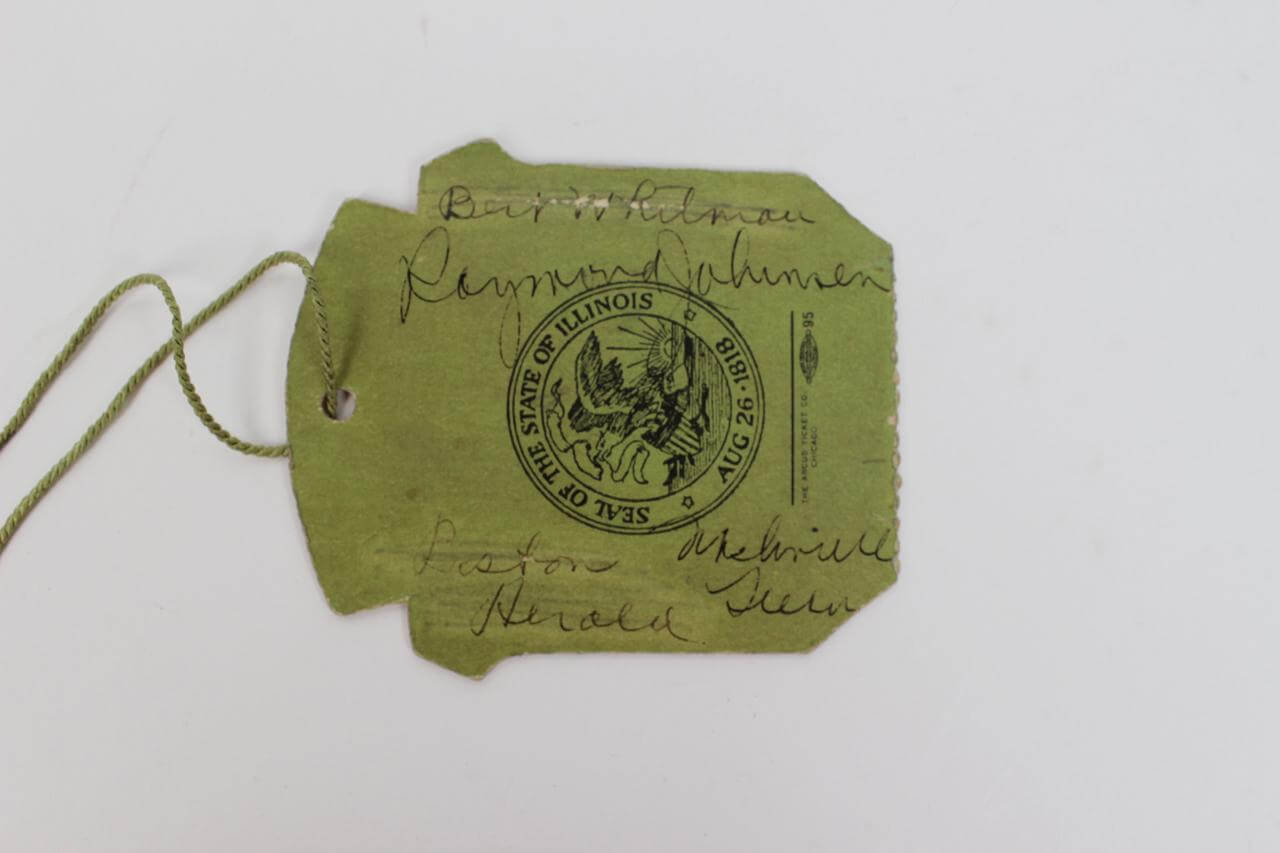 Bert Whitman
Raymond Johnson
SEAL OF THE STATE OF ILLINOIS
AUG 26 • 1818
95
THE ARCUS TICKET CO.
CHICAGO
Boston
Herald
Nashville